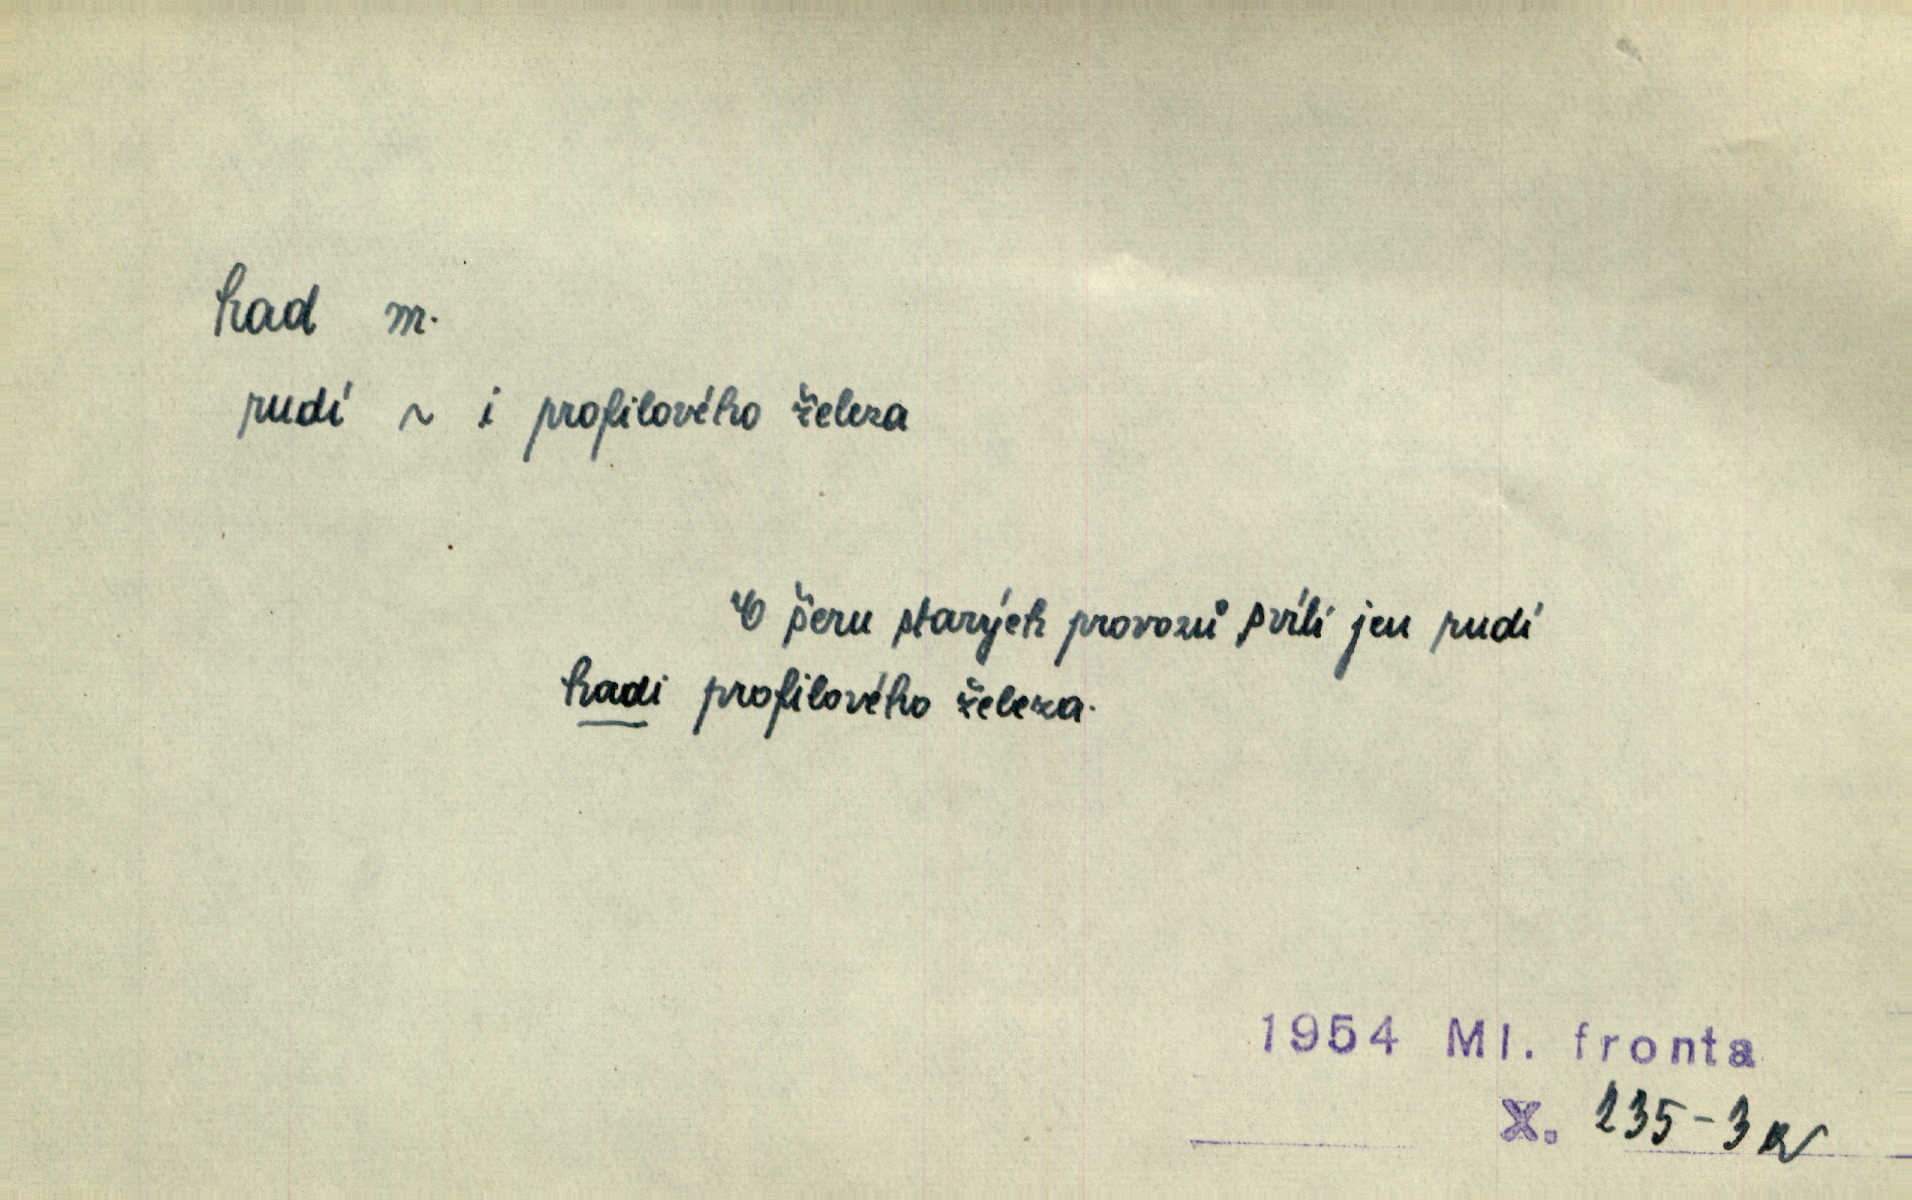 had m.
rudí ~ i profilového železa
V šeru starých provozů svítí jen rudí
hadi profilového železa.
1954 Ml. fronta
X. 235-3